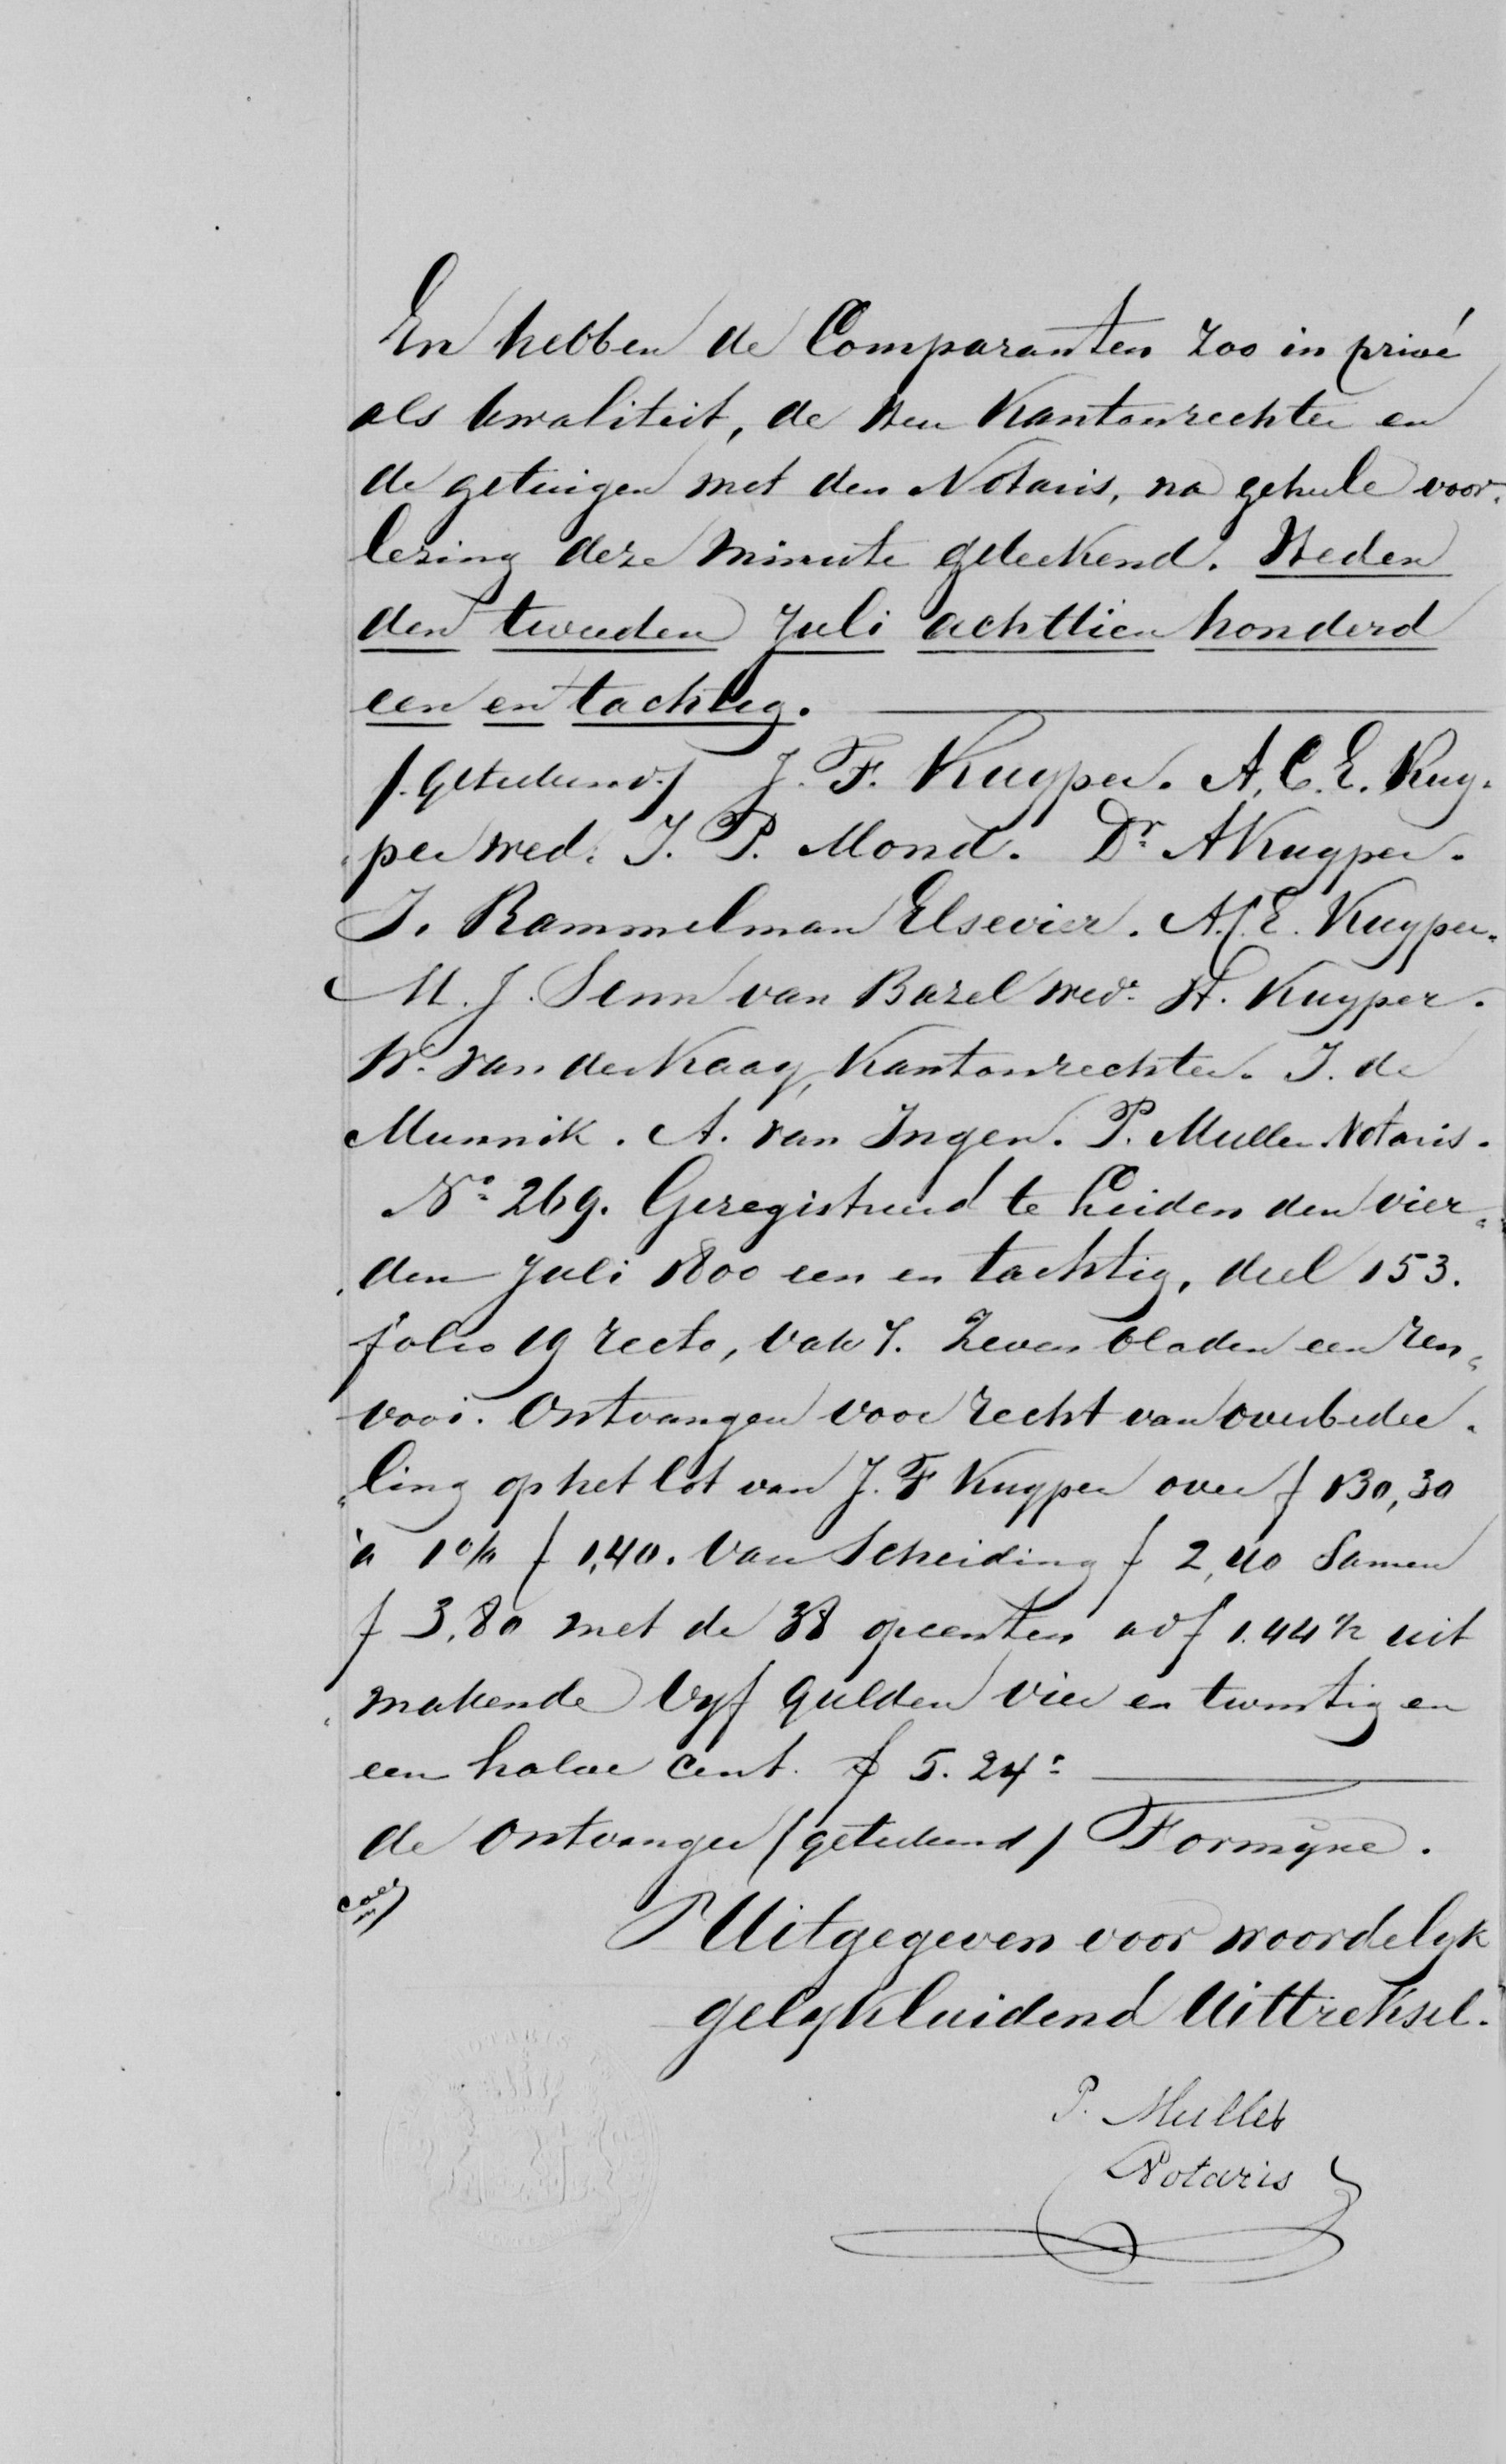 En hebben de Comparanten zoo in privé
als kwaliteit, de Heer Kantonrechter en
de getuigen met den Notaris, na geheele voor-
lezing deze Minute geteekend. Heden
den tweeden Juli achttien honderd
een en tachtig.
/.geteekend./ J. F. Kuyper. A. C. E. Kuy-
per wed. J. P. Mond. Dr. A Kuyper.
J. Rammelman Elsevier. A. C. E. Kuyper.
M. J. Senn van Bazel wed. H. Kuyper.
W. van der Kaay, Kantonrechter. J. de
Munnik. A. van Ingen. P. Muller Notaris.
No. 269. Geregistreerd te Leiden den vier-
den Juli 1800 een en tachtig, deel 153.
folio 19 recto, vak 7. Zeven bladen een ren-
vooi. Ontvangen voor recht van overbedee-
ling op het lot van J. F Kuyper over f 130,30
à 1 % f 1,40. Van Scheiding f 2,40 Samen
f 3,80 met de 38 opcenten ad f 1.44½ uit
makende Vyf gulden vier en twintig en
een halve cent. f 5.24⁵
de Ontvanger /geteekend/ Formijne.
coll
Uitgegeven voor woordelyk
gelykluidend Uittreksel.
P. Muller
Notaris